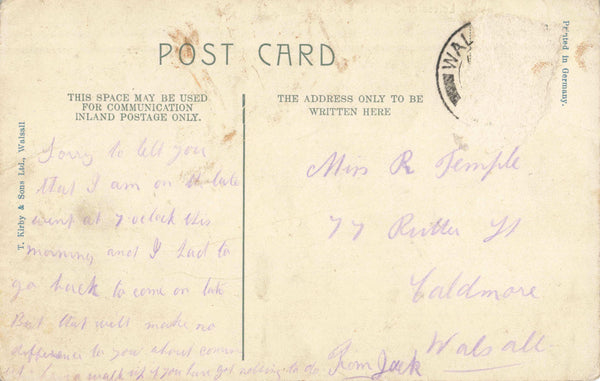 POST CARD
WAL
Printed in Germany.
T. Kirby & Sons Ltd., Walsall
THIS SPACE MAY BE USED
FOR COMMUNICATION
INLAND POSTAGE ONLY.
THE ADDRESS ONLY TO BE
WRITTEN HERE
Sorry to tell you
that I am on late
went at 7 oclock this
morning and I had to
go back to come on late
But that will make no
difference to you about
walk up if you have got nothing to do
From Jack
Miss R Temple
77 Rutter St
Caldmore
Walsall